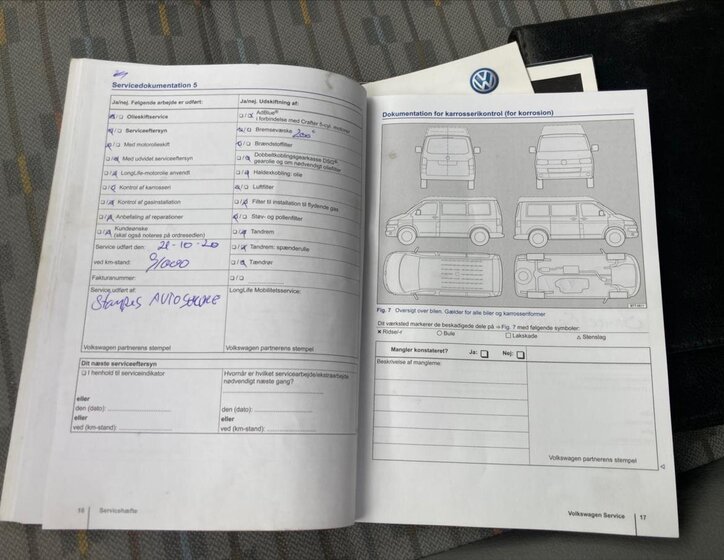 Servicedokumentation 5
Ja/nej. Følgende arbejde er udført:
Olieskiftservice
Serviceeftersyn
Med motorolieskift
Med udvidet serviceeftersyn
LongLife-motorolie anvendt
Kontrol af karrosseri
Kontrol af gasinstallation
Anbefaling af reparationer
Kundeønske
(skal også noteres på ordresedlen)
Service udført den: 21-10-20
ved km-stand:
Fakturanummer:
Service udført af:
AUTO
Volkswagen partnerens stempel
Ja/nej. Udskiftning af:
AdBlue®
i forbindelse med Crafter 5-cyl. motorer
Bremsevæske
Brændstoffilter
Dobbeltkoblingsgearkasse DSG®
gearolie og om nødvendigt oliefilter
Haldexkobling: olie
Luftfilter
Filter til installation til flydende gas
Støv- og pollenfilter
Tandrem
Tandrem: spænderulle
Tændrør
LongLife Mobilitetsservice:
Volkswagen partnerens stempel
Dit næste serviceeftersyn
I henhold til serviceindikator
eller
den (dato):
eller
ved (km-stand):
Hvornår er hvilket servicearbejde/ekstraarbejde
nødvendigt næste gang?
den (dato):
eller
ved (km-stand):
16 Servicehæfte
Dokumentation for karrosserikontrol (for korrosion)
Fig. 7 Oversigt over bilen. Gælder for alle biler og karrosseriformer
Dit værksted markerer de beskadigede dele på ⇒ Fig. 7 med følgende symboler:
× Ridse/-r ○ Bule □ Lakskade △ Stenslag
Mangler konstateret? Ja: Nej:
Beskrivelse af manglerne:
Volkswagen partnerens stempel
Volkswagen Service 17